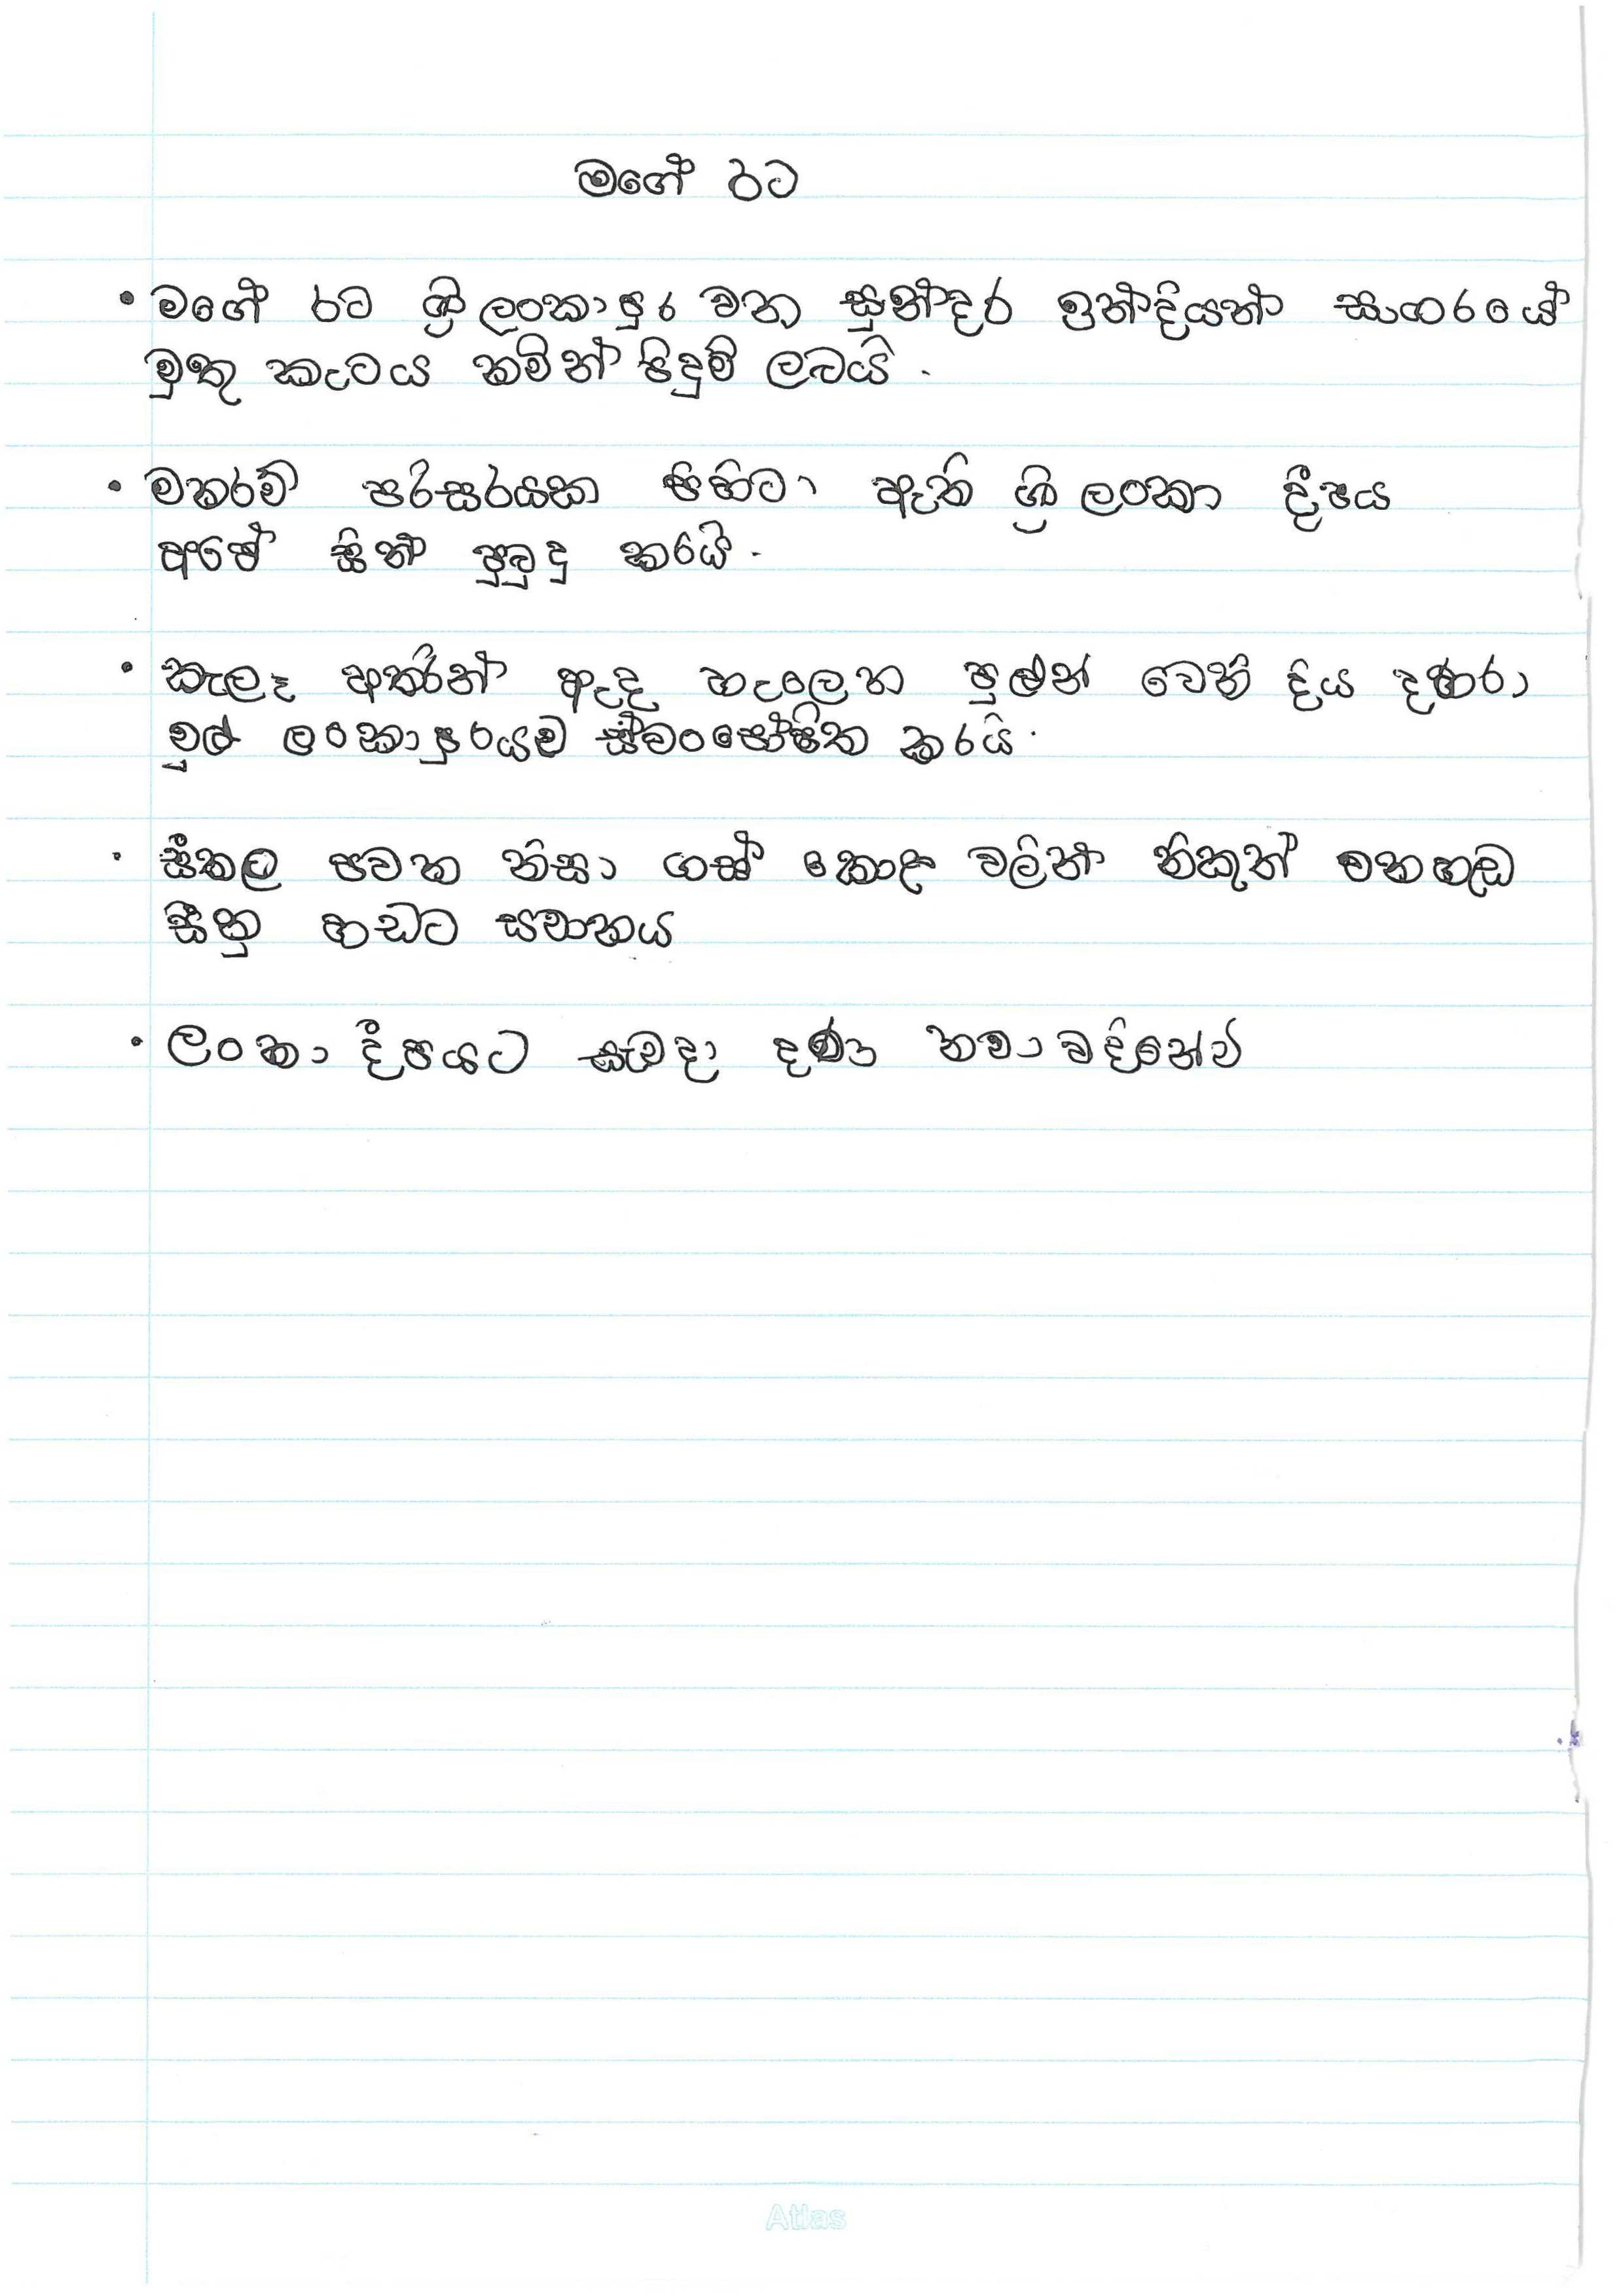 මගේ රට
• මගේ රට ශ්‍රී ලංකාපුර වන සුන්දර ඉන්දියන් සාගරයේ
මුතු කැටය නමින් පිදුම් ලබයි.
• මනරම් පරිසරයක පිහිටා ඇති ශ්‍රී ලංකා දීපය
අපේ සිත් පුබුදු කරයි.
• කැලෑ අතරින් ඇද හැලෙන පුළුන් වෙනි දිය දහරා
මුළු ලංකාපුරයම ස්වංපෝෂිත කරයි.
• සීතල පවන නිසා ගස් කොළ වලින් නිකුත් වන හඬ
සීනු හඬට සමානය
• ලංකා දීපයට සැමදා දණ නමා වදිනෙව්
Atlas